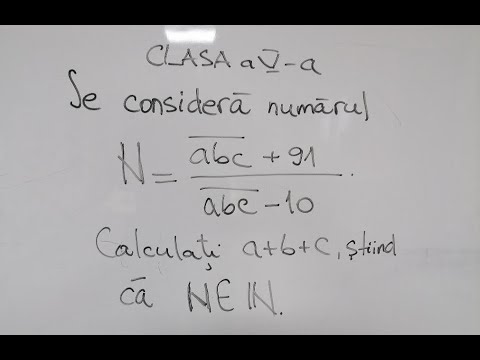 CLASA a V-a
Se consideră numărul
N = \frac{\overline{abc} + 91}{\overline{abc} - 10}.
Calculați a+b+c, știind
că N∈ℕ.